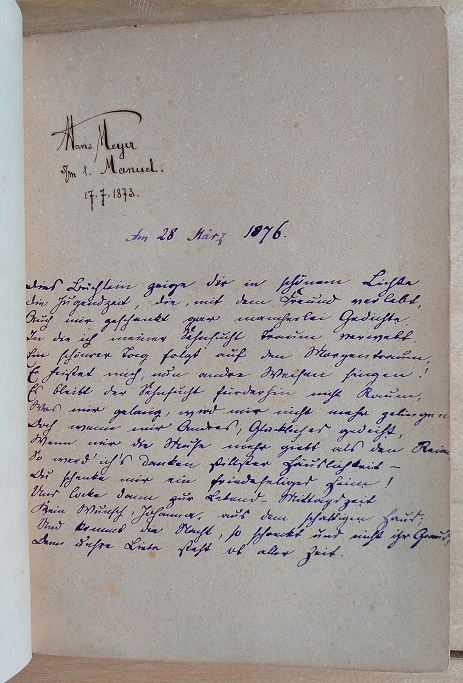 Hans Meyer
s/m l. Manuel.
17.7.1873.
Am 28 März 1876.
Dies Büchlein zeige dir in schönem Lichte
die Jugendzeit, die, mit dem Freund verlebt,
Auch mir geschenkt gar mancherlei Gedichte
In die ich meiner Sehnsucht Traum verwebt.
Ein schönrer Tag folgt auf dem Morgentraume,
Er heißet mich nun andre Weisen singen!
Es bleibt der Sehnsucht fürderhin nicht Raum,
Was mir gelang, wird mir nicht mehr gelingen
Doch wenn mir Andres, Glückliches gedeiht,
Wenn mir die Muße mehr giebt als den Reim
So werd' ich's danken stillster Häuslichkeit –
Du schenke mir ein friedeseliges Heim!
Uns locke dann zur Lebens Mittagszeit
Kein Wunsch, Johanna, aus dem schattigen Haus,
Und kommt die Nacht, so schreckt uns nicht ihr Graus,
Denn unsre Liebe steht ob aller Zeit.